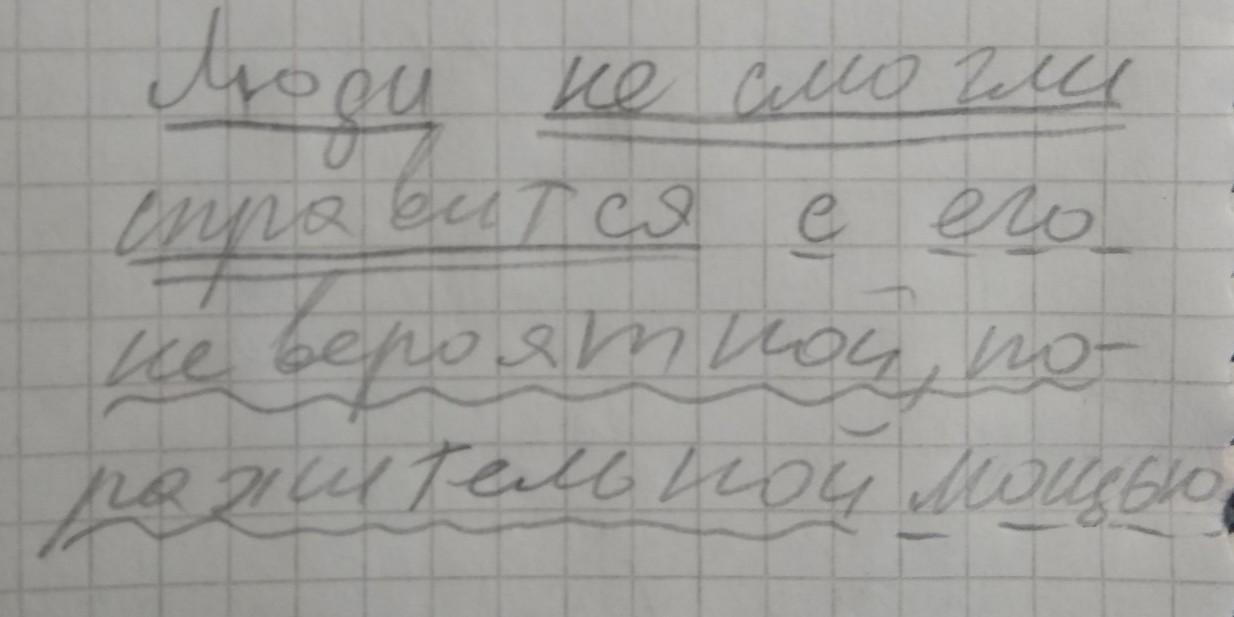 Люди не смогли
справится с его
невероятной, по-
ражительной мощью